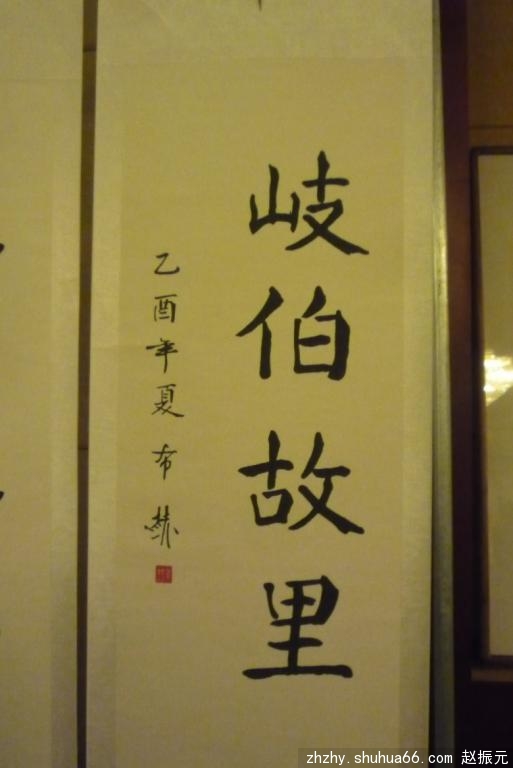 岐伯故里
乙酉年夏 布赫
zhzhy.shuhua66.com 赵振元